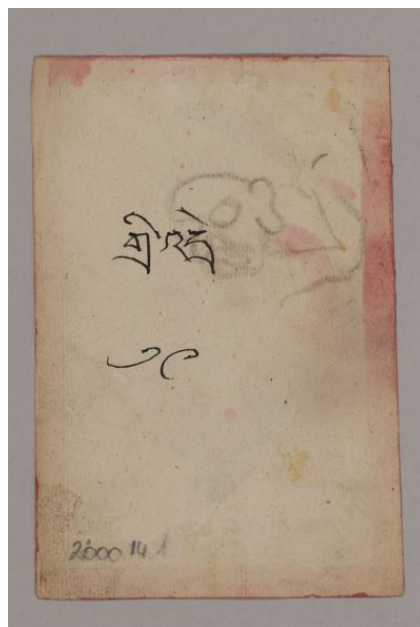 གྲི་འདྲེ
2000 14 1